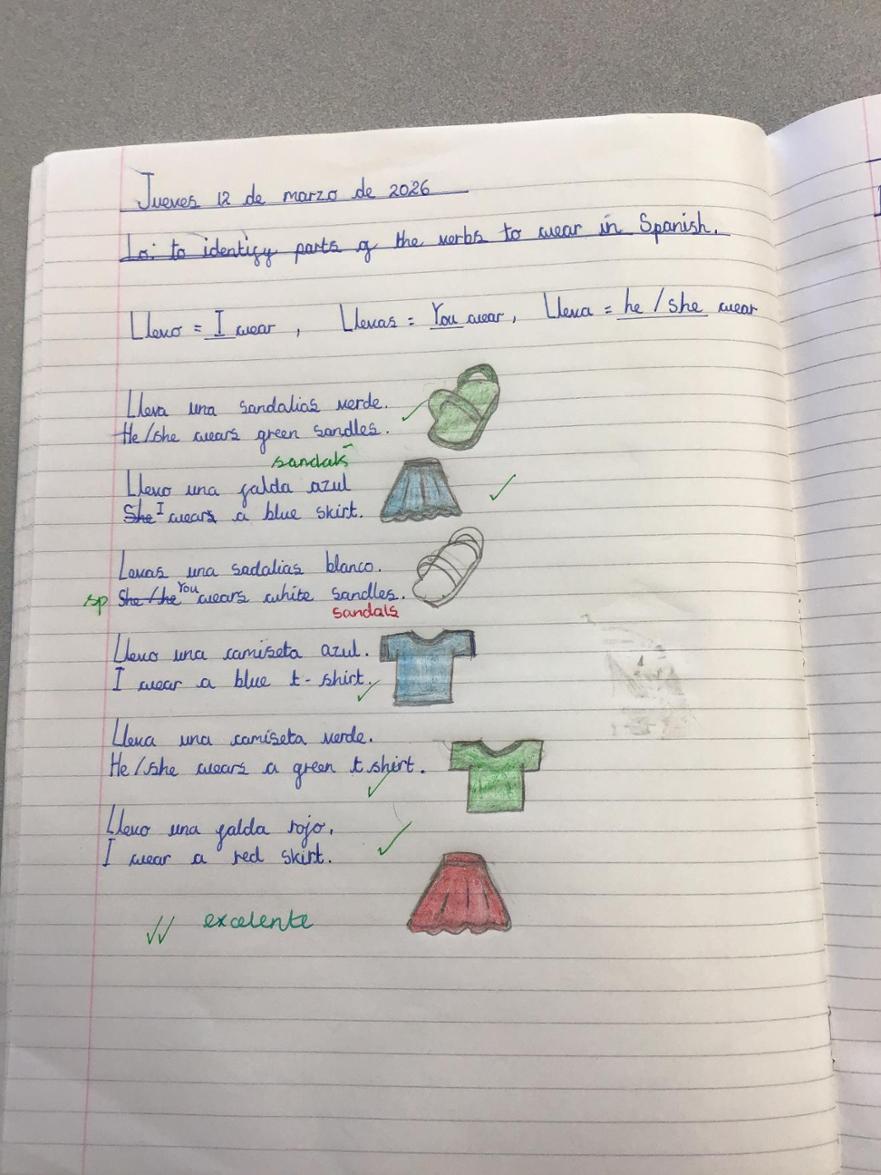 Jueves 12 de marzo de 2026
Lo: to identify parts of the verbs to wear in Spanish.
Llevo = I wear , Llevas = You wear, Lleva = he / she wear
Lleva una sandalias verde.
He/she wears green sandles.
sandals
Llevo una falda azul
She I wears a blue skirt.
Levas una sadalias blanco.
sp She/he You wears white sandles.
sandals
Llevo una camiseta azul.
I wear a blue t-shirt.
Lleva una camiseta verde.
He/she wears a green t.shirt.
Llevo una falda rojo.
I wear a red skirt.
excelente